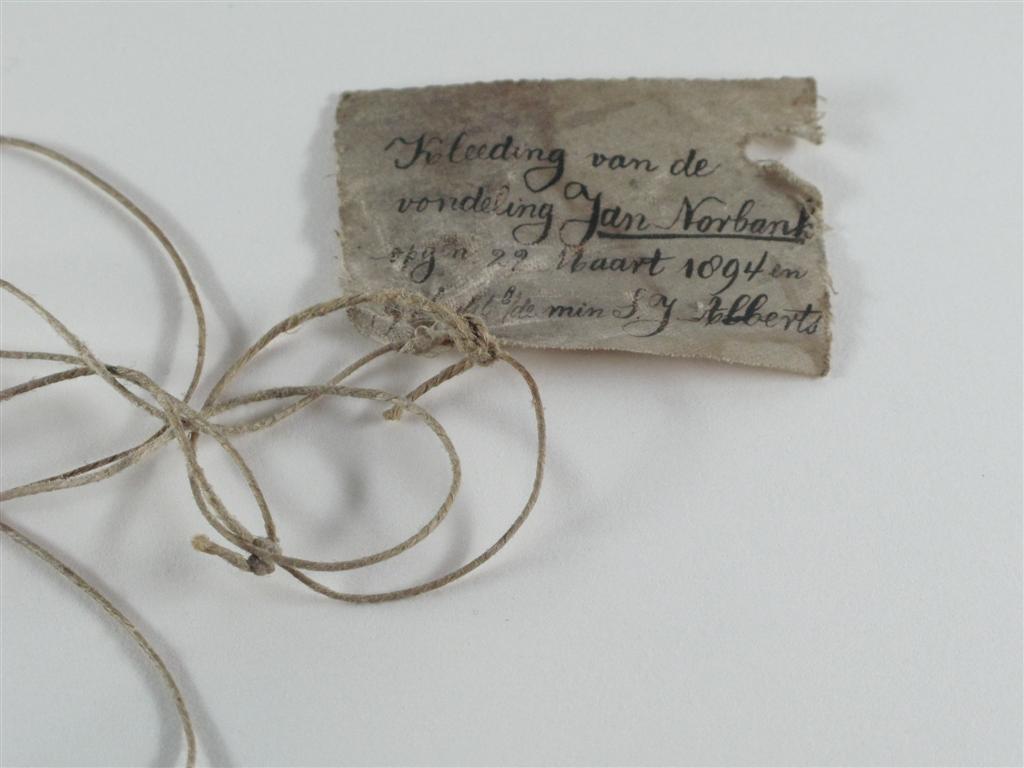 Kleeding van de
vondeling Jan Norbank
opgn 29 Maart 1894 en
b/de min S J Abberts